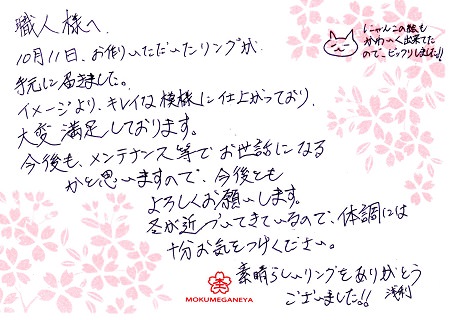 職人様へ
10月11日、お作りいただいたリングが
手元に届きました。
イメージより、キレイな模様に仕上がっており、
大変満足しております。
今後も、メンテナンス等でお世話になる
かと思いますので、今後とも
よろしくお願いします。
冬が近づいてきているので、体調には
十分お気をつけください。
素晴らしいリングをありがとう
ございました!! 浅利
にゃんこの絵も
かわいく出来てた
ので、ビックリしました!!
MOKUMEGANEYA